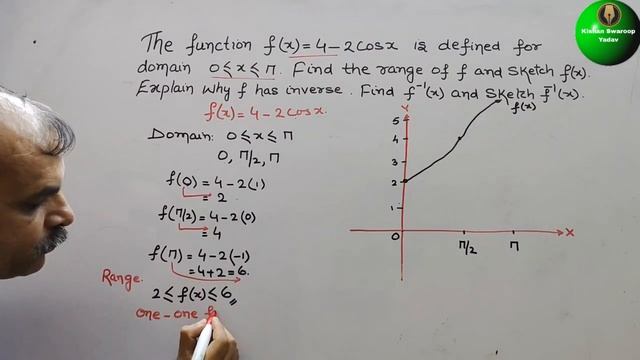 The function f(x) = 4-2cosx is defined for
domain 0 ≤ x ≤ π. Find the range of f and sketch f(x).
Explain why f has inverse. Find f⁻¹(x) and sketch f⁻¹(x).
f(x) = 4-2cosx.
Domain: 0 ≤ x ≤ π
0, π/2, π
f(0) = 4-2(1)
= 2
f(π/2) = 4-2(0)
= 4
f(π) = 4-2(-1)
= 4+2 = 6.
Range.
2 ≤ f(x) ≤ 6
one-one f
Y
f(x)
5
4
3
2
1
0
π/2
π
X
Kishan Swaroop
Yadav